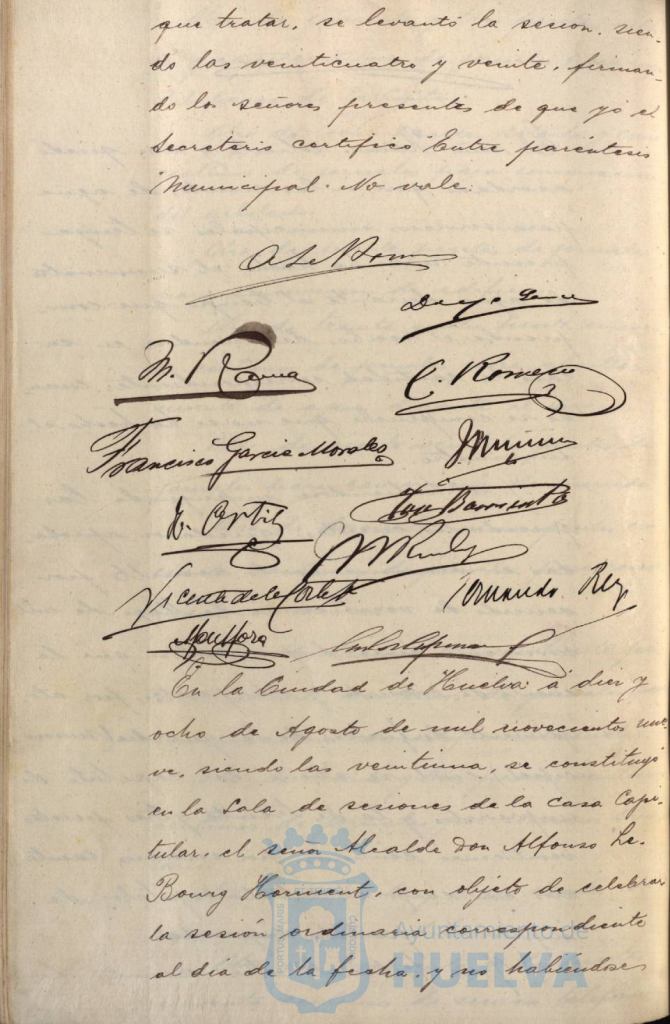 que tratar, se levantó la sesion, sien-
do las veinticuatro y veinte, firman-
do los señores presentes de que yo el
Secretario certifico Entre paréntesis
Municipal. No vale.
Francisco Garcia Morales
C. Romero
H. Ortiz
Vicente de la Corte
En la Ciudad de Huelva: á diez y
ocho de Agosto de mil novecientos nue-
ve, siendo las veintiuna, se constituyó
en la Sala de sesiones de la casa Capi-
tular, el señor Alcalde Don Alfonso Le-
Bourg Horment, con objeto de celebrar
la sesión ordinaria correspondiente
al dia de la fecha, y no habiéndose
Ayuntamiento de
HUELVA